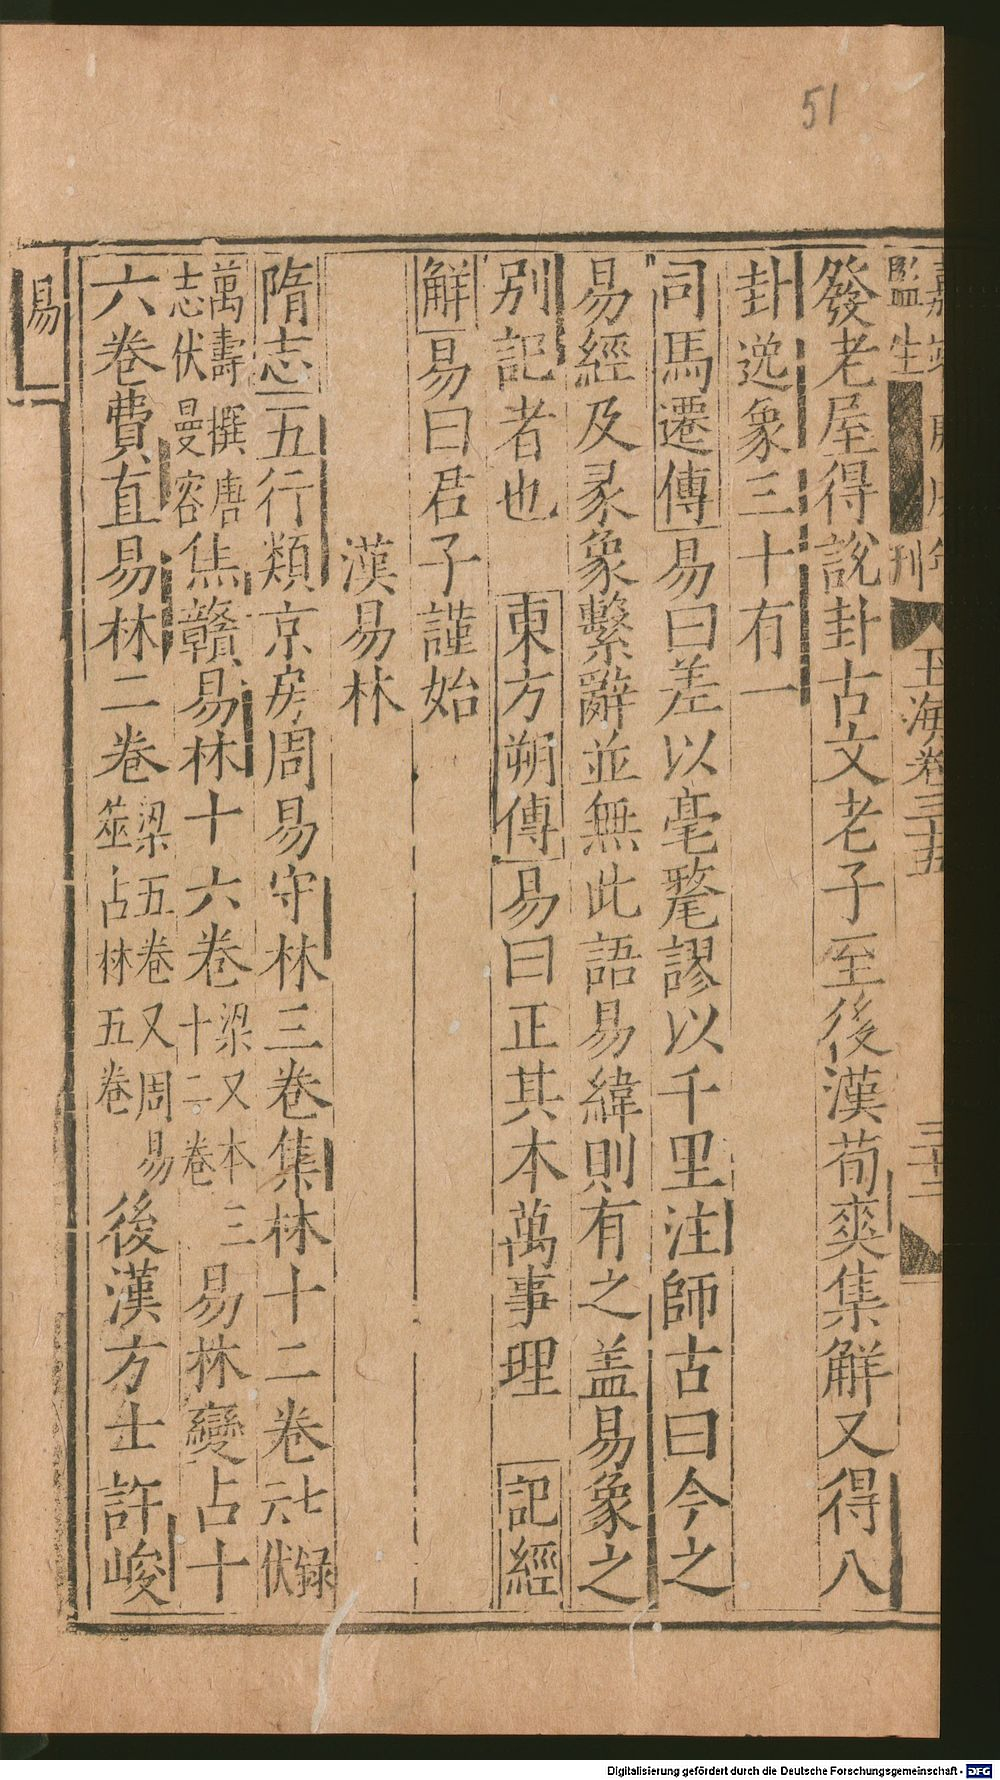 51
監生 刊
玉海卷三十五 三十二
發老屋得說卦古文老子至後漢荀爽集解又得八
卦逸象三十有一
司馬遷傳易曰差以毫氂謬以千里注師古曰今之
易經及彖象繫辭並無此語易緯則有之盖易象之
別記者也 東方朔傳易曰正其本萬事理 記經
解易曰君子謹始
漢易林
隋志五行類京房周易守林三卷集林十二卷七録
六伏
萬壽撰唐
志伏曼容焦贛易林十六卷梁又本三
十二卷易林變占十
六卷費直易林二卷梁五卷又周易
筮占林五卷後漢方士許峻
易
Digitalisierung gefördert durch die Deutsche Forschungsgemeinschaft - DFG